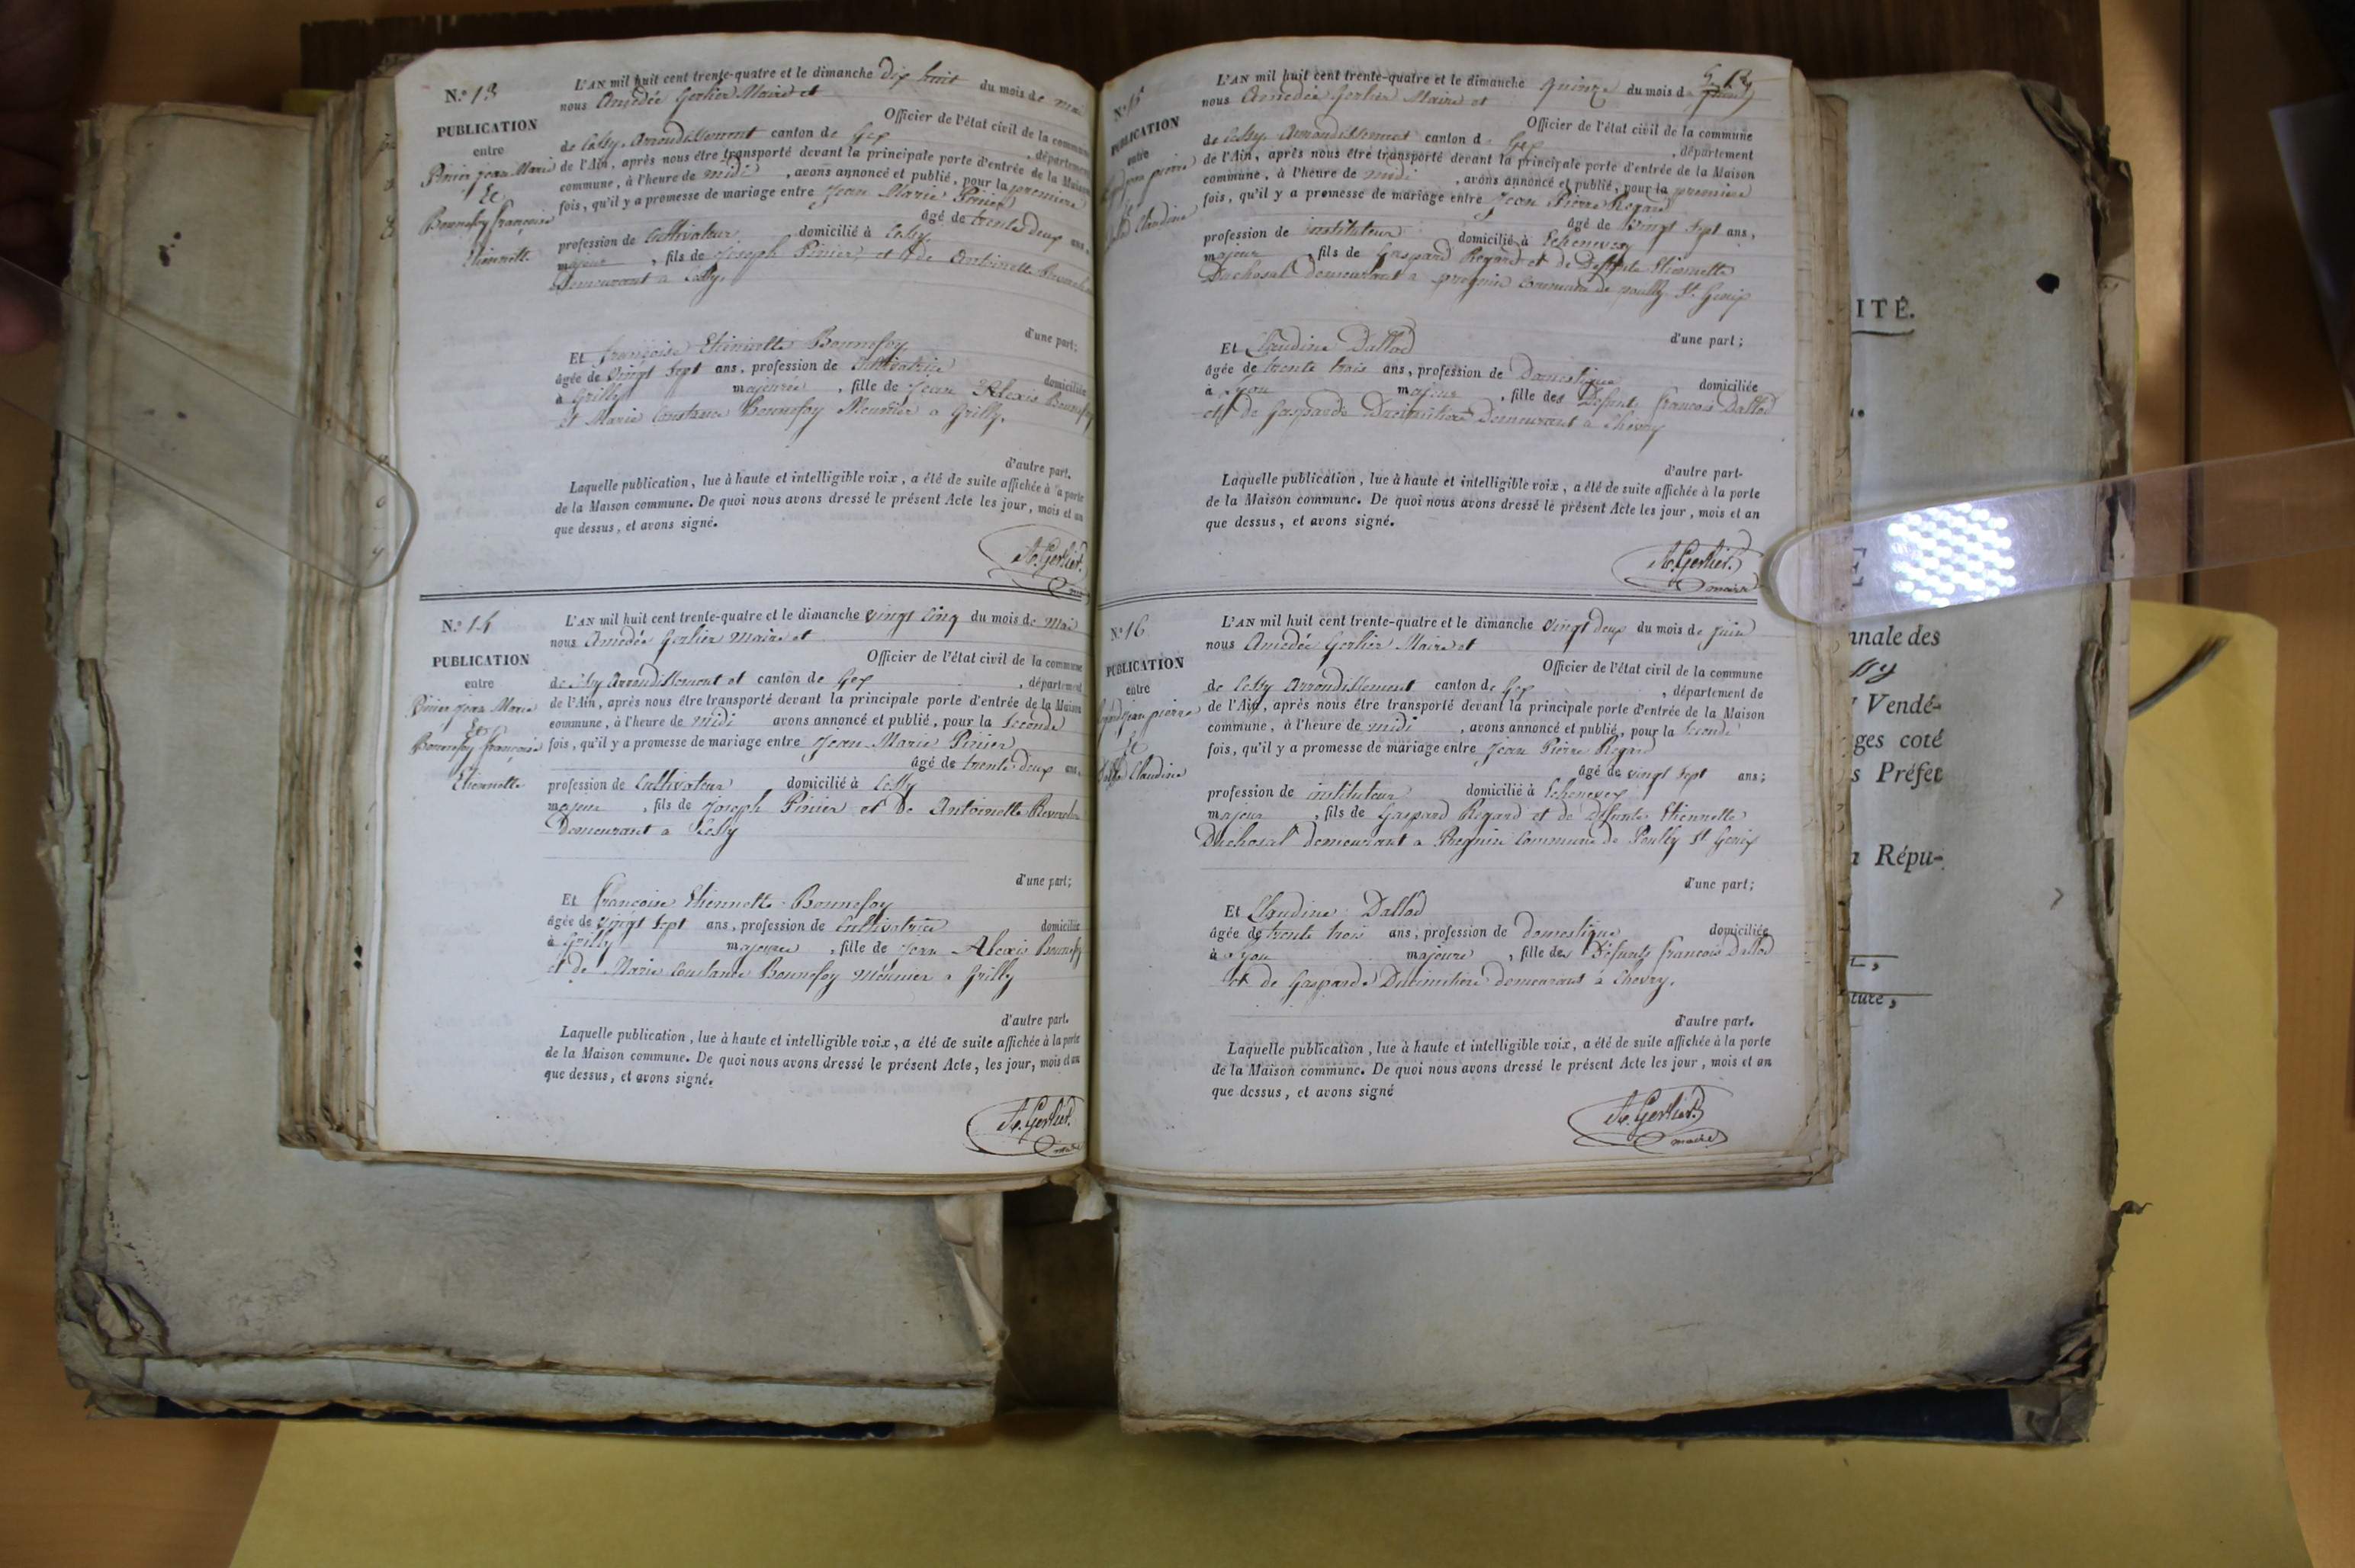 N.° 13
PUBLICATION
entre
Pinier Jean Marie
Et
Bonnefoy françoise
Etiennette
L'AN mil huit cent trente-quatre et le dimanche dix huit du mois de mai
nous Amedée Gerlier Maire et
Officier de l'état civil de la commune
de Cessy, Arrondissement canton de Gex , département
de l'Ain, après nous être transporté devant la principale porte d'entrée de la Maison
commune, à l'heure de midi , avons annoncé et publié, pour la premiere
fois, qu'il y a promesse de mariage entre Jean Marie Pinier
âgé de trente deux ans,
profession de Cultivateur , domicilié à Cessy
majeur , fils de Joseph Pinier et de Antoinette
Demeurant a Cessy,
d'une part;
Et françoise Etiennette Bonnefoy
âgée de vingt sept ans, profession de Cultivatrice domiciliée
à Grilly majeure , fille de Jean Alexis Bonnefoy
et Marie Constance Bonnefoy Meunier a Grilly.
d'autre part.
Laquelle publication, lue à haute et intelligible voix, a été de suite affichée à la porte
de la Maison commune. De quoi nous avons dressé le présent Acte les jour, mois et an
que dessus, et avons signé.
A. Gerlier.
N.° 14
PUBLICATION
entre
Pinier Jean Marie
Et
Bonnefoy françoise
Etiennette
L'AN mil huit cent trente-quatre et le dimanche vingt cinq du mois de Mai
nous Amedée Gerlier maire et
Officier de l'état civil de la commune
de Cessy Arrondissement et canton de Gex , département
de l'Ain, après nous être transporté devant la principale porte d'entrée de la Maison
commune, à l'heure de midi avons annoncé et publié, pour la seconde
fois, qu'il y a promesse de mariage entre Jean Marie Pinier
âgé de trente-deux ans,
profession de Cultivateur domicilié à Cessy
majeur , fils de Joseph Pinier et De Antoinette
Demeurant a Cessy
d'une part;
Et françoise Etiennette Bonnefoy
âgée de vingt sept ans, profession de Cultivatrice domiciliée
à Grilly majeure , fille de Jean Alexis Bonnefoy
et de Marie Constance Bonnefoy Meunier a Grilly
d'autre part.
Laquelle publication, lue à haute et intelligible voix, a été de suite affichée à la porte
de la Maison commune. De quoi nous avons dressé le présent Acte, les jour, mois et an
que dessus, et avons signé.
A. Gerlier.
N.° 15
PUBLICATION
entre
jean pierre
Et
Claudine
L'AN mil huit cent trente-quatre et le dimanche quinze du mois d juin
nous Amedée Gerlier Maire et
Officier de l'état civil de la commune
de Cessy, Arrondissement canton d Gex , département
de l'Ain, après nous être transporté devant la principale porte d'entrée de la Maison
commune, à l'heure de midi , avons annoncé et publié, pour la premiere
fois, qu'il y a promesse de mariage entre Jean Pierre Regard
âgé de vingt sept ans,
profession de instituteur domicilié à Echenevex
majeur , fils de Gaspard Regard et de Defunte Etiennette
Duchosal demeurant a pregnin Commune de pouilly St. Genix
d'une part;
Et Claudine Dallod
âgée de trente trois ans, profession de Domestique domiciliée
à Lyon majeure , fille des Defunts francois Dallod
et de Gasparde Demeurant à Chevry
d'autre part.
Laquelle publication, lue à haute et intelligible voix, a été de suite affichée à la porte
de la Maison commune. De quoi nous avons dressé le présent Acte les jour, mois et an
que dessus, et avons signé.
A. Gerlier.
maire
N.° 16
PUBLICATION
entre
Regard jean pierre
Et
Dallod Claudine
L'AN mil huit cent trente-quatre et le dimanche vingt deux du mois de juin
nous Amedée Gerlier Maire et
Officier de l'état civil de la commune
de Cessy Arrondissement canton de Gex , département de
de l'Ain, après nous être transporté devant la principale porte d'entrée de la Maison
commune, à l'heure de midi , avons annoncé et publié, pour la seconde
fois, qu'il y a promesse de mariage entre Jean Pierre Regard
âgé de vingt sept ans;
profession de instituteur domicilié à Echenevex
majeur , fils de Gaspard Regard et de Défunte Etiennette
Duchosal demeurant a Pregnin Commune de Pouilly St Genix
d'une part;
Et Claudine Dallod
âgée de trente trois ans, profession de domestique domiciliée
à Lyon majeure , fille des Défunts francois Dallod
et de Gasparde demeurant à Chevry.
d'autre part.
Laquelle publication, lue à haute et intelligible voix, a été de suite affichée à la porte
de la Maison commune. De quoi nous avons dressé le présent Acte les jour, mois et an
que dessus, et avons signé
A. Gerlier.
maire
ITÉ.
nnale des
Vendé-
ges coté
s Préfet
a Répu-
ture,